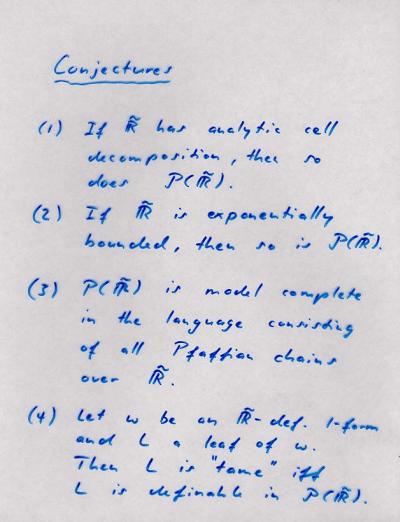 Conjectures
(1) If ℝ̃ has analytic cell
decomposition, then so
does P(ℝ̃).
(2) If ℝ̃ is exponentially
bounded, then so is P(ℝ̃).
(3) P(ℝ̃) is model complete
in the language consisting
of all Pfaffian chains
over ℝ̃.
(4) Let w be an ℝ̃-def. 1-form
and L a leaf of w.
Then L is "tame" iff
L is definable in P(ℝ̃).